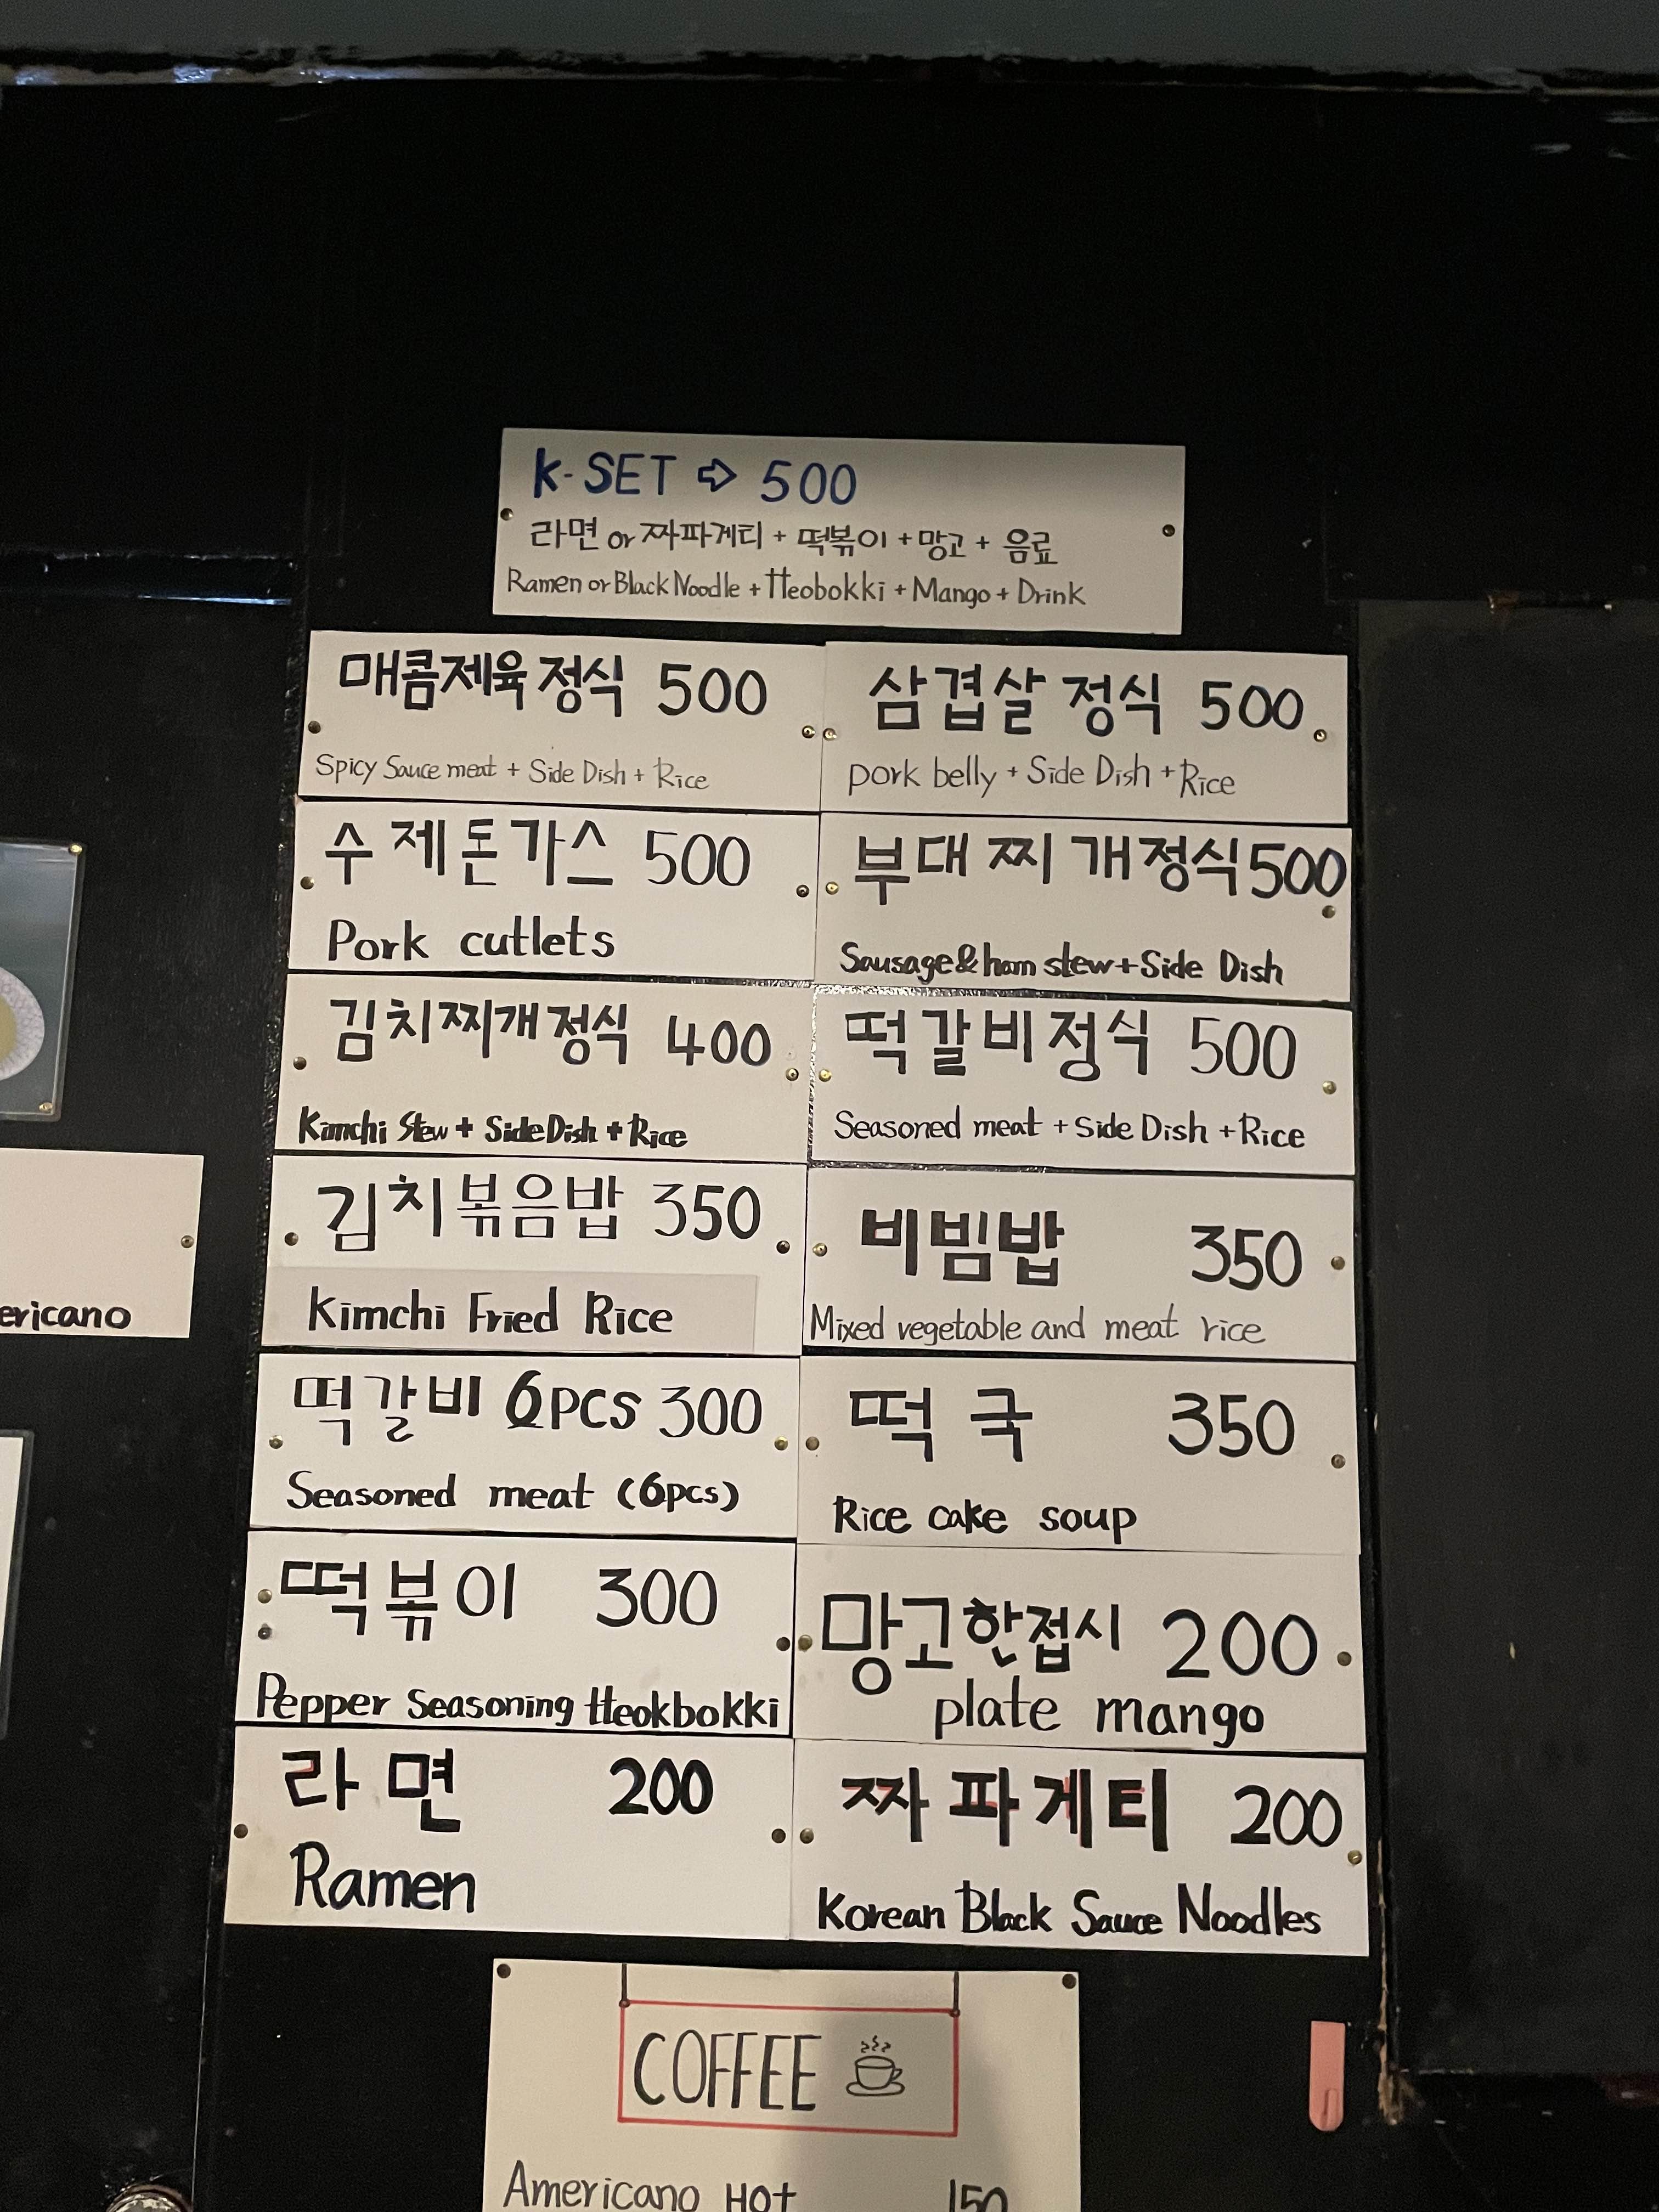 K-SET ⇨ 500
라면 or 짜파게티 + 떡볶이 + 망고 + 음료
Ramen or Black Noodle + tteobokki + Mango + Drink
매콤제육정식 500
Spicy Sauce meat + Side Dish + Rice
삼겹살 정식 500
pork belly + Side Dish + Rice
수제돈가스 500
Pork cutlets
부대찌개정식 500
Sausage & ham stew + Side Dish
김치찌개정식 400
Kimchi Stew + Side Dish + Rice
떡갈비정식 500
Seasoned meat + Side Dish + Rice
김치볶음밥 350
Kimchi Fried Rice
비빔밥 350
Mixed vegetable and meat rice
떡갈비 6PCS 300
Seasoned meat (6pcs)
떡국 350
Rice cake soup
떡볶이 300
Pepper Seasoning tteokbokki
망고한접시 200
plate mango
라면 200
Ramen
짜파게티 200
Korean Black Sauce Noodles
ericano
COFFEE
Americano HOt 150